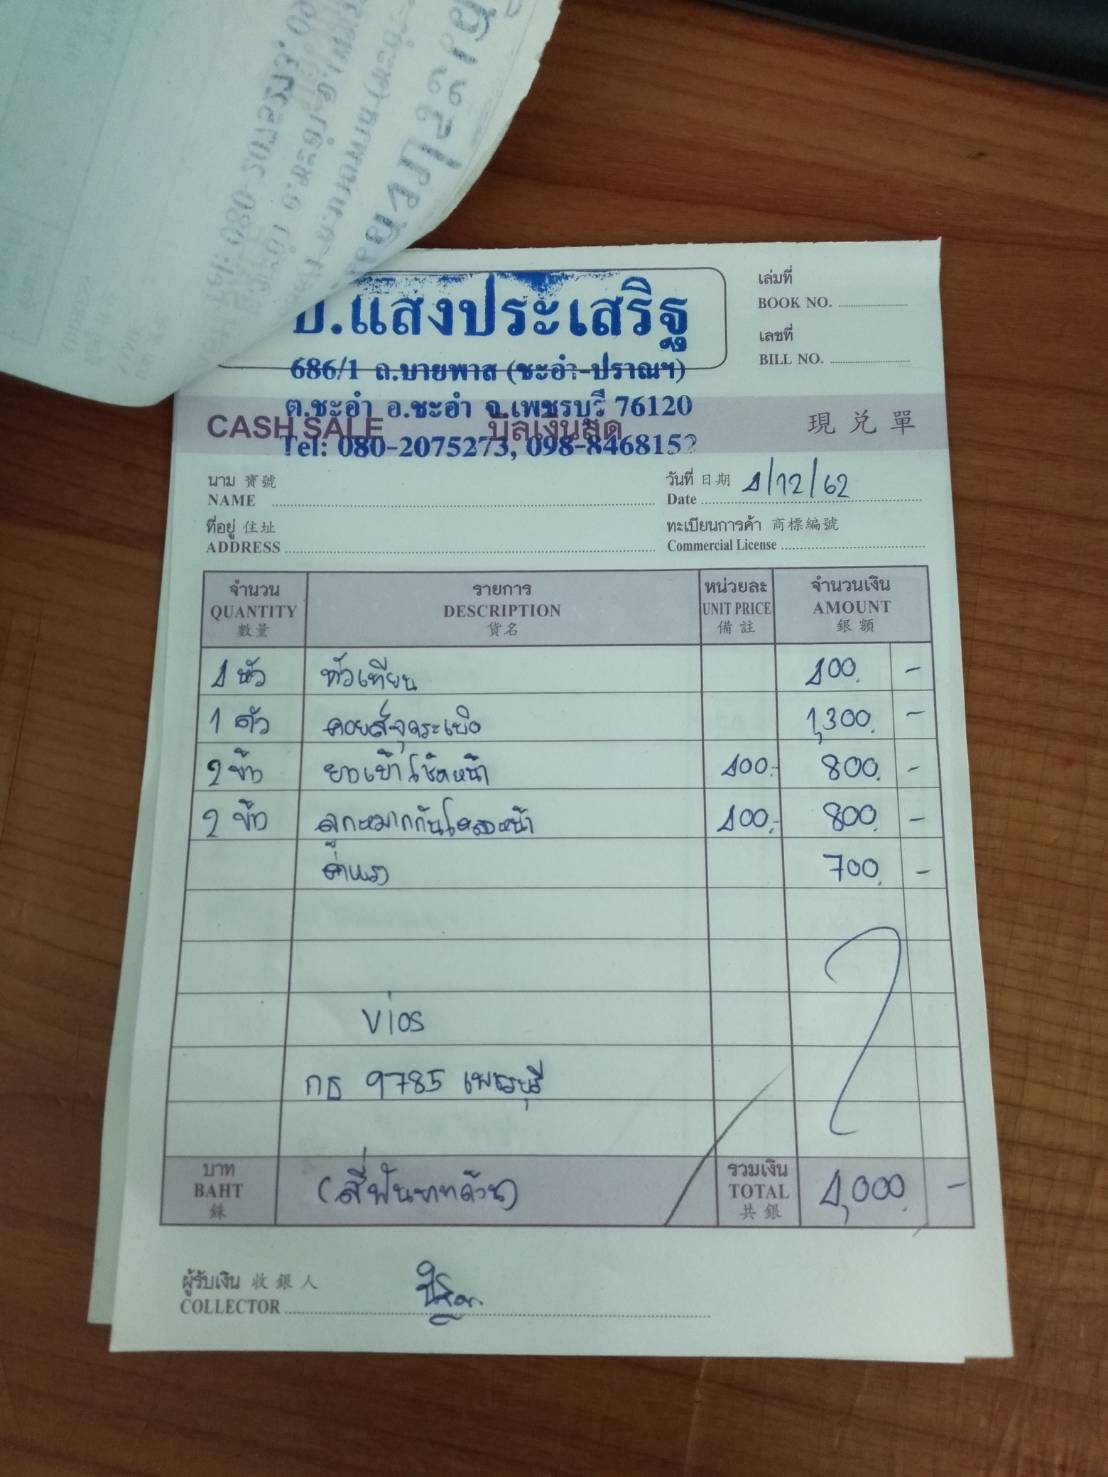 บ.แสงประเสริฐ
686/1 ถ.บายพาส (ชะอำ-ปราณฯ)
ต.ชะอำ อ.ชะอำ จ.เพชรบุรี 76120
Tel: 080-2075273, 098-8468152
เล่มที่
BOOK NO.
เลขที่
BILL NO.
CASH SALE บิลเงินสด 現兑單
นาม 寶號
NAME
วันที่ 日期 4/12/62
Date
ที่อยู่ 住址
ADDRESS
ทะเบียนการค้า 商標編號
Commercial License
จำนวน รายการ หน่วยละ จำนวนเงิน
QUANTITY DESCRIPTION UNIT PRICE AMOUNT
數量 貨名 備註 銀額
4 หัว หัวเทียน 400.-
1 ตัว คอยล์จุดระเบิด 1,300.-
2 ข้าง ยางเบ้าโช้คหน้า 400.- 800.-
2 ข้าง ลูกหมากกันโคลงหน้า 400.- 800.-
ค่าแรง 700.-
Vios
กธ 9785 เพชรบุรี
บาท
BAHT (สี่พันบาทถ้วน)
銖
รวมเงิน
TOTAL 4,000.-
共銀
ผู้รับเงิน 收銀人
COLLECTOR